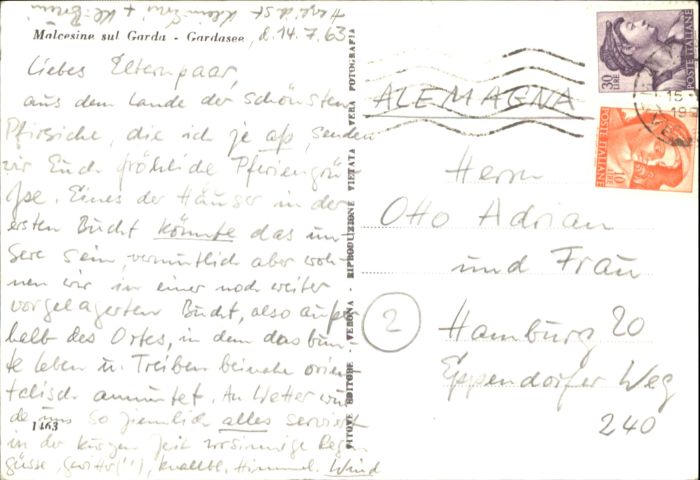 Herzl. d. St. Klein Evi + Kl. Brüm
Malcesine sul Garda - Gardasee, d. 14.7.63
Liebes Elternpaar,
aus dem Lande der schönsten
Pfirsiche, die ich je aß, senden
wir Euch fröhliche Feriengrü
ße. Eines der Häuser in der
ersten Bucht könnte das un-
sere sein, vermutlich aber woh
nen wir in einer noch weiter
vorgelagerten Bucht, also außer
halb des Ortes, in dem das bun
te Leben u. Treiben beinahe orien
talisch anmutet. An Wetter wur
de uns so ziemlich alles serviert
in der kurzen Zeit: Regen
güsse, Gewitter(!!), knallbl. Himmel. Wind
1163
FITOVE EDITORE - VERONA - RIPRODUZIONE VIETATA - VERA FOTOGRAFIA
ALEMAGNA
Herrn
Otto Adrian
und Frau
2
Hamburg 20
Eppendorfer Weg
240
30 LIRE
POSTE ITALIANE
10 LIRE
POSTE ITALIANE
15
19